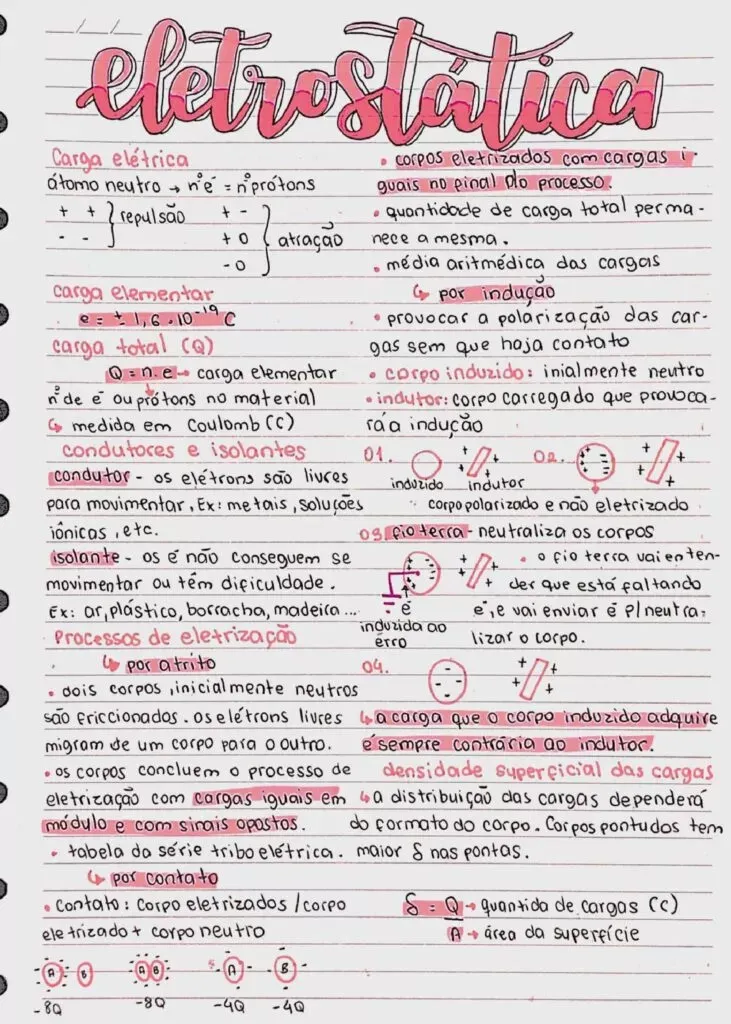 eletrostática
Carga elétrica
átomo neutro → nº é = nº prótons
+ + } repulsão
- -
+ - } atração
+ 0
- 0
Carga elementar
e = ± 1,6 · 10⁻¹⁹ C
carga total (Q)
Q = n. e → carga elementar
nº de é ou prótons no material
↳ medida em Coulomb (C)
condutores e isolantes
condutor - os elétrons são livres
para movimentar, Ex: metais, soluções
iônicas, etc.
isolante - os é não conseguem se
movimentar ou têm dificuldade.
Ex: ar, plástico, borracha, madeira...
Processos de eletrização
↳ por atrito
• dois corpos, inicialmente neutros
são friccionados. os elétrons livres
migram de um corpo para o outro.
• os corpos concluem o processo de
eletrização com cargas iguais em
módulo e com sinais opostos.
• tabela da série triboelétrica.
↳ por contato
• Contato: Corpo eletrizados / corpo
eletrizado + corpo neutro
A B AB A B
-8Q -8Q -4Q -4Q
• corpos eletrizados com cargas i
guais no final do processo.
• quantidade de carga total perma-
nece a mesma.
• média aritmédica das cargas
↳ por indução
• provocar a polarização das car-
gas sem que haja contato
• corpo induzido: inialmente neutro
• indutor: corpo carregado que provoca-
rá a indução
01. 02.
induzido indutor
corpo polarizado e não eletrizado
03. fio terra - neutraliza os corpos
• o fio terra vai enten-
der que está faltando
é, e vai enviar é p/ neutra-
lizar o corpo.
é
induzida ao
érro
04.
↳ a carga que o corpo induzido adquire
é sempre contrária ao indutor.
densidade superficial das cargas
↳ a distribuição das cargas dependerá
do formato do corpo. Corpos pontudos tem
maior δ nas pontas.
δ = Q → quantida de cargas (C)
A → área da superfície